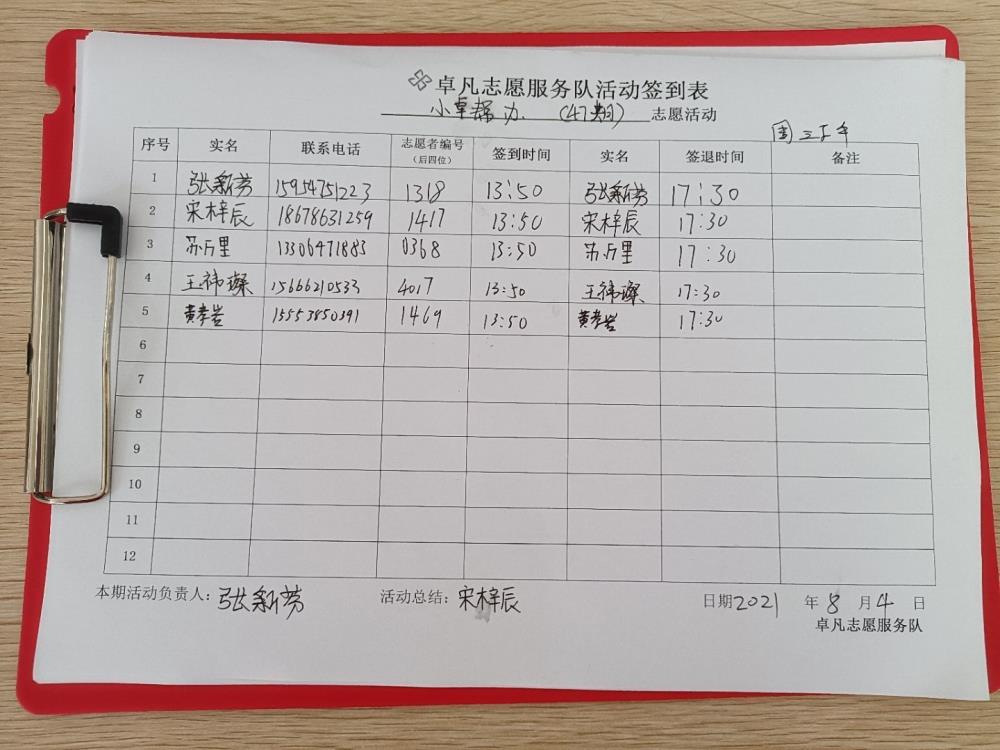 卓凡志愿服务队活动签到表
小卓帮办 (47期) 志愿活动
周三下午
序号 实名 联系电话 志愿者编号(后四位) 签到时间 实名 签退时间 备注
1 张新芳 15954751223 1368 13:50 张新芳 17:30
2 宋梓辰 18678631259 1417 13:50 宋梓辰 17:30
3 苏万里 13306471883 0368 13:50 苏万里 17:30
4 王祎璨 15666210533 4017 13:50 王祎璨 17:30
5 黄孝岩 15553850391 1469 13:50 黄孝岩 17:30
6
7
8
9
10
11
12
本期活动负责人:张新芳 活动总结:宋梓辰 日期2021 年 8 月 4 日
卓凡志愿服务队